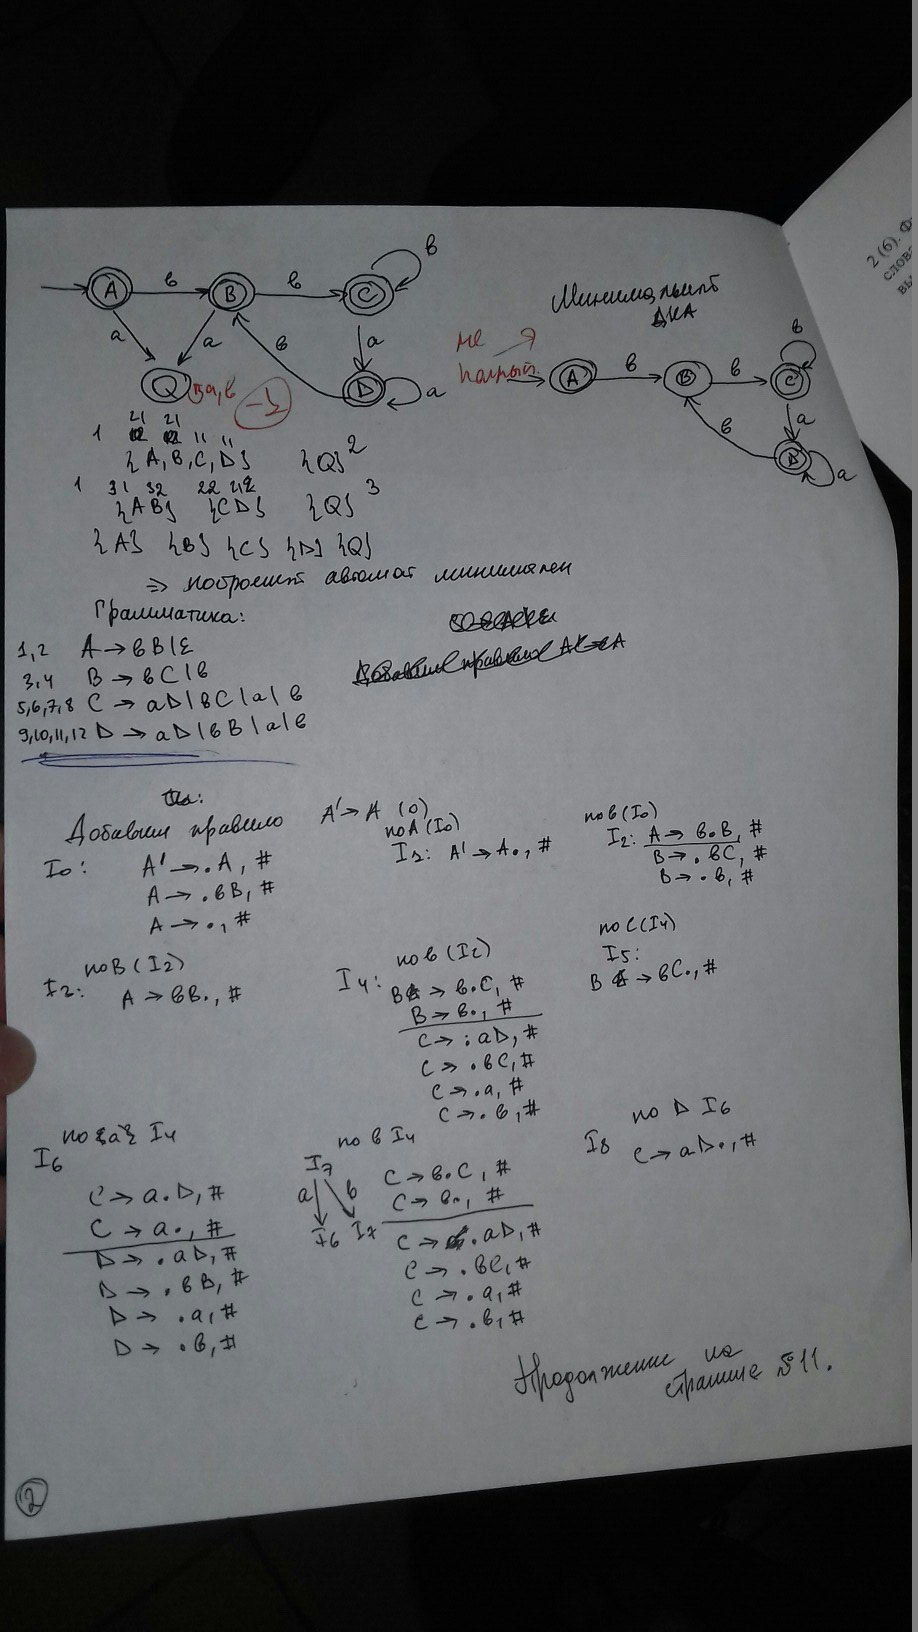 A в B в C в
a a в a D a
Q a, в
-½
Минимальный
ДКА
не
полный.
A в B в C в
в a
D a
1 21 21 11 11
{A, B, C, D} {Q} 2
1 31 32 22 212
{AB} {CD} {Q} 3
{A} {B} {C} {D} {Q}
=> построенный автомат минимален
Грамматика:
1,2 A → вB | ε
3,4 B → вC | в
5,6,7,8 C → aD | вC | a | в
9,10,11,12 D → aD | вB | a | в
Добавим правило A' → A (0)
I0: A' → .A, #
A → .вB, #
A → ., #
по A (I0)
I1: A' → A., #
по в (I0)
I2: A → в.B, #
B → .вC, #
B → .в, #
по B (I2)
I3: A → вB., #
по в (I2)
I4: B → в.C, #
B → в., #
C → .aD, #
C → .вC, #
C → .a, #
C → .в, #
по C (I4)
I5:
B → вC., #
по {a} I4
I6
C → a.D, #
C → a., #
D → .aD, #
D → .вB, #
D → .a, #
D → .в, #
по в I4
I7
a в
I6 I7
C → в.C, #
C → в., #
C → .aD, #
C → .вC, #
C → .a, #
C → .в, #
по D I6
I8 C → aD., #
Продолжение на
странице №11.
2
2 (6). Ф
слова
вы